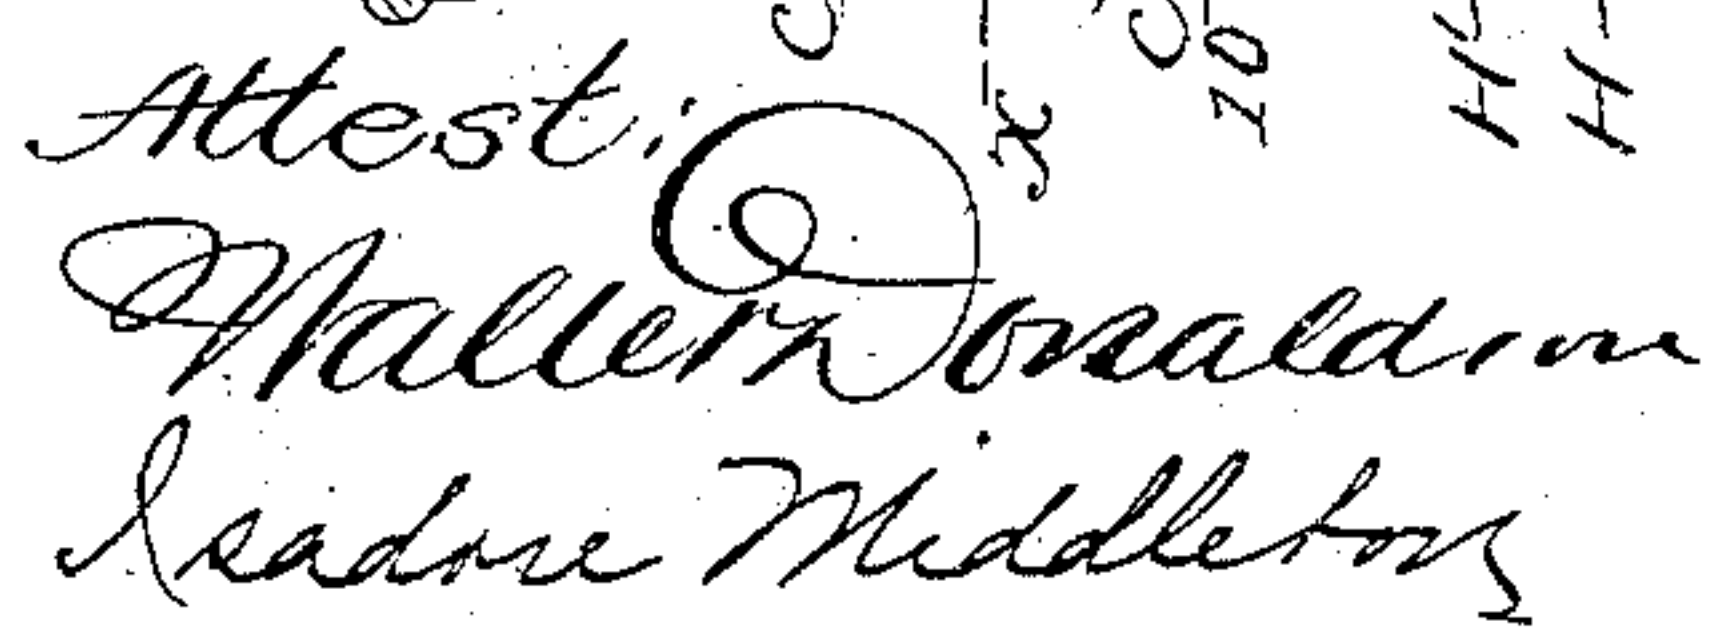 Attest:
Walter Donaldson
Isadore Middleton